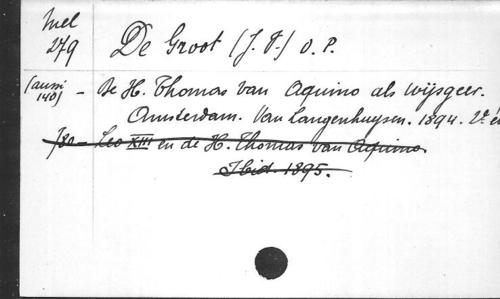 Mel
279
De Groot (J. F.) O. P.
(aussi
140)
- De H. Thomas van Aquino als wijsgeer.
Amsterdam. Van Langenhuysen. 1894. 2e é
780 - Leo XIII en de H. Thomas van Aquino.
Ibid. 1895.